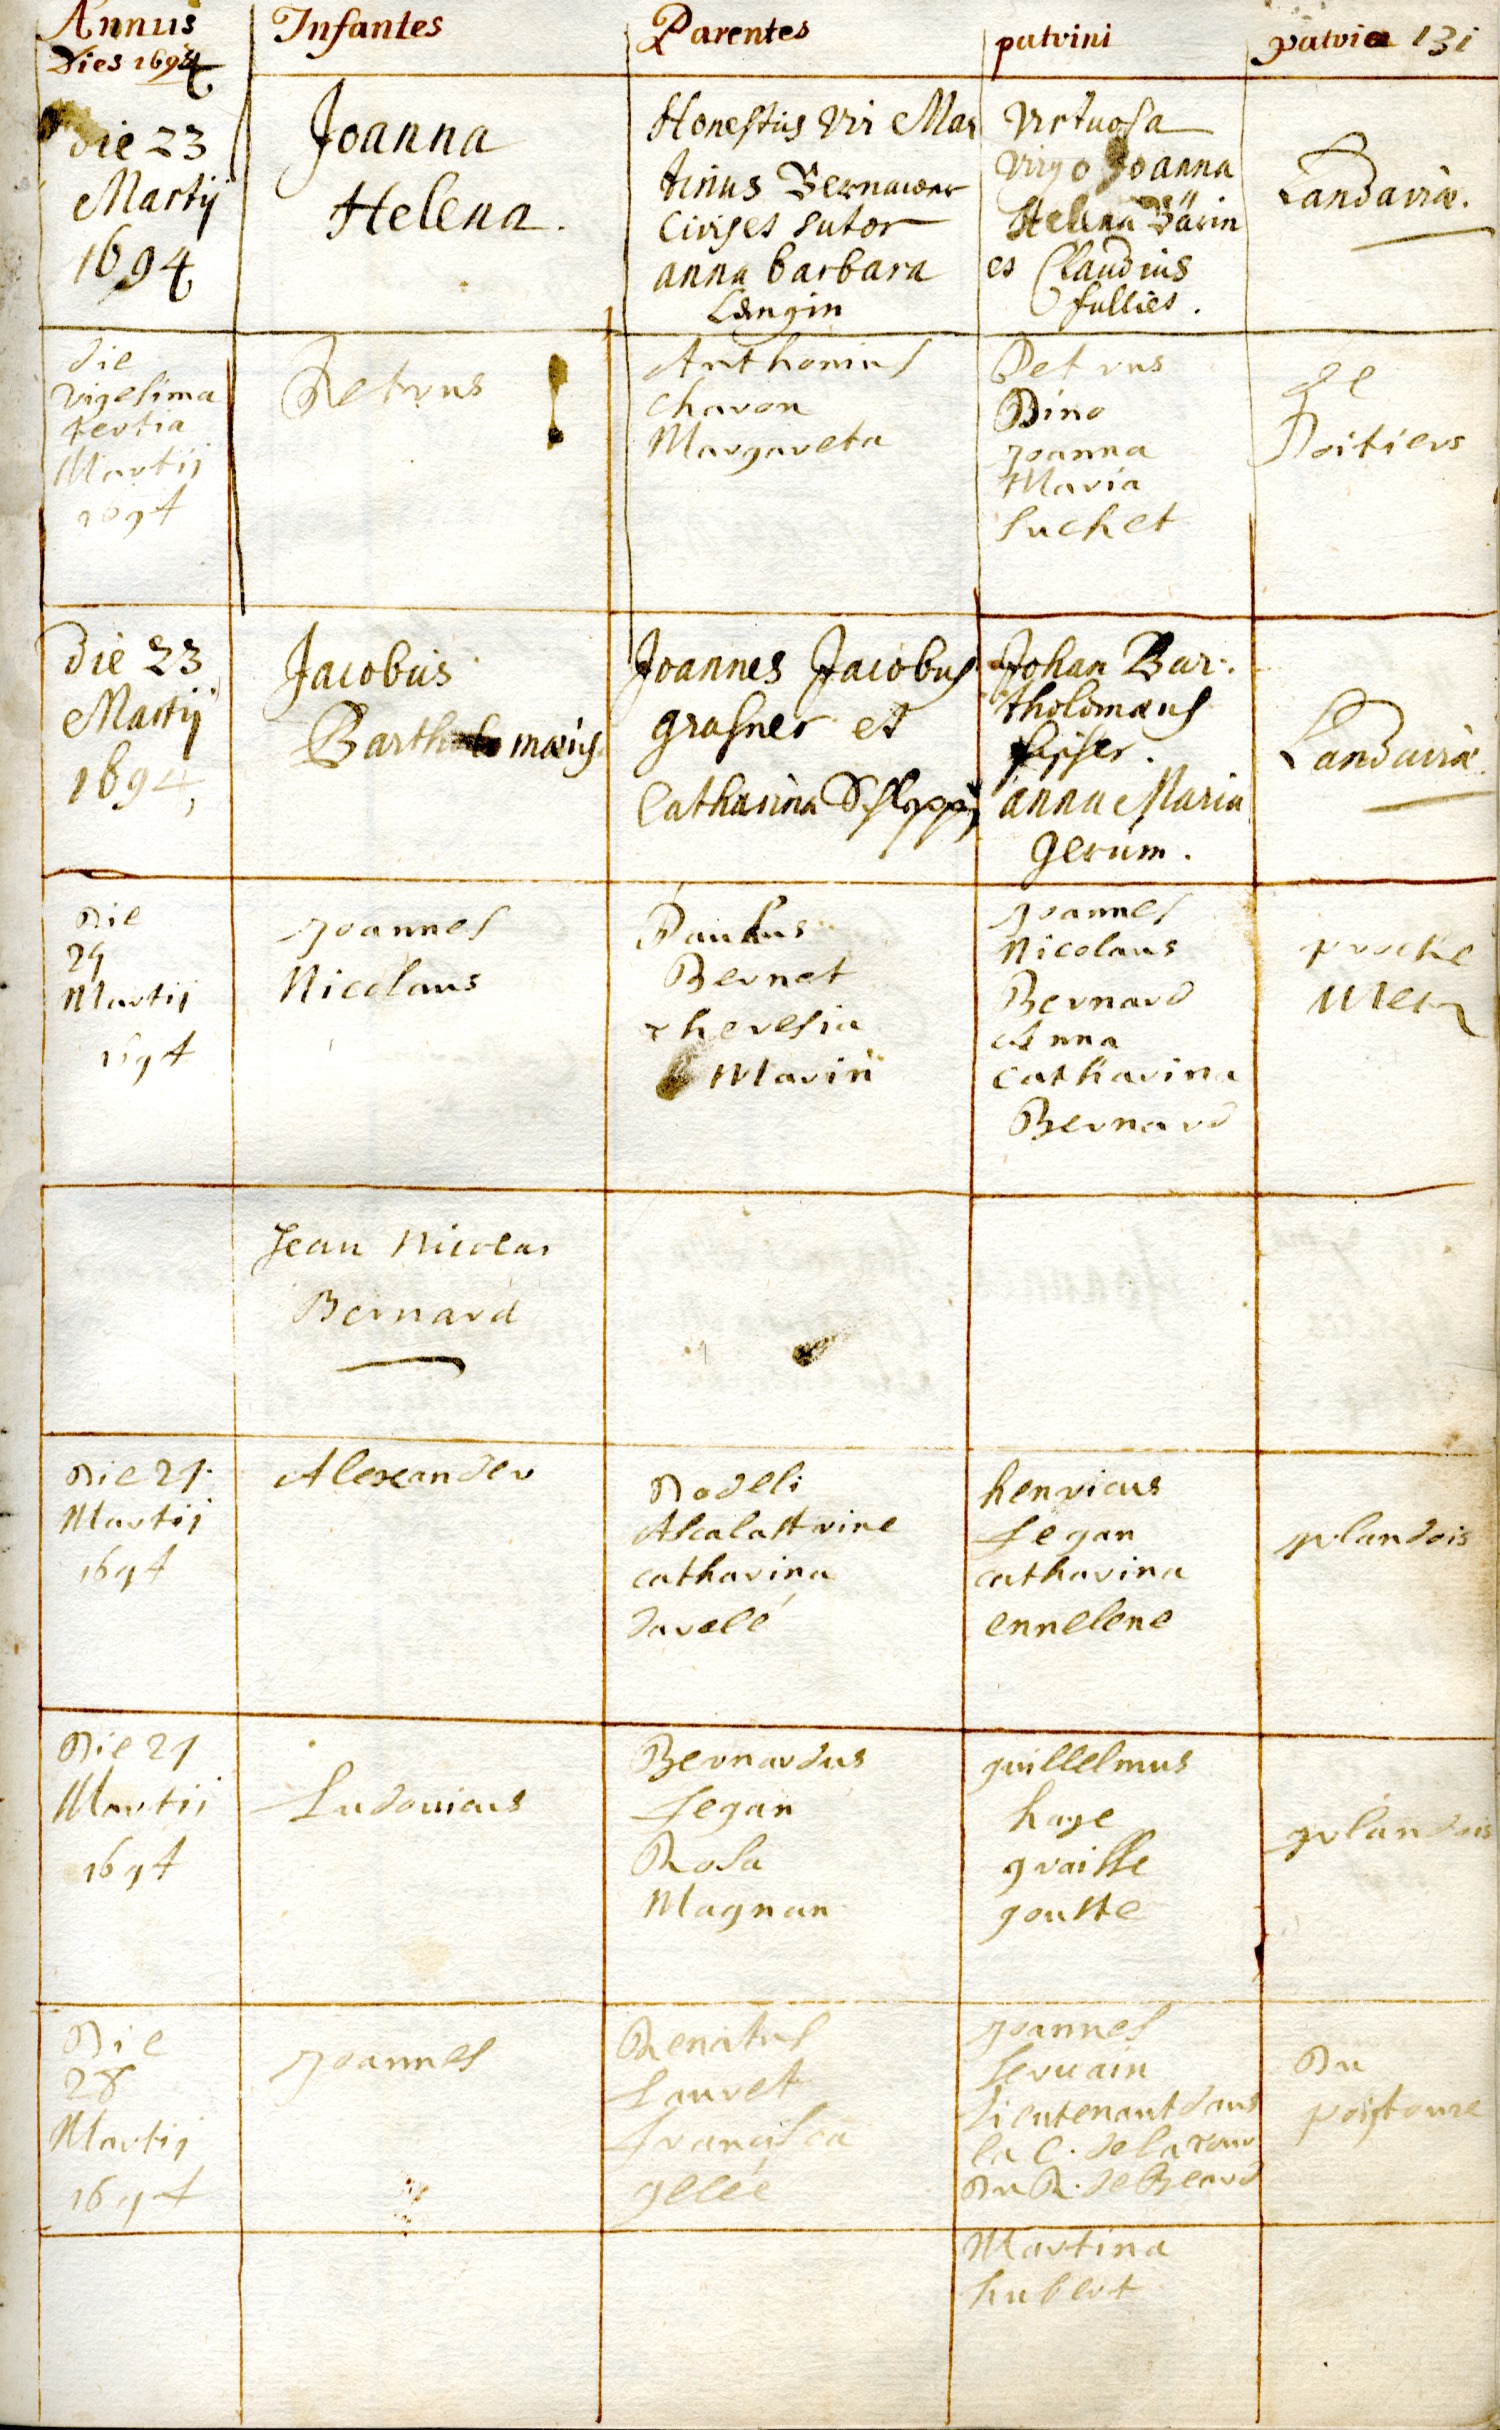 Annus
Dies 1694
Infantes
Parentes
patrini
patria 131
Die 23
Martij
1694
Joanna
Helena.
Honestus Vir Mar
tinus Bernauer
Civis et sutor
anna barbara
Langin
Virtuosa
Virgo Joanna
Helena Bärin
et Claudius
fullies.
Landaviæ.
die
vigesima
tertia
Martij
1694
Petrus
Anthonius
Charon
Margareta
Petrus
Dino
Joanna
Maria
Suchet
de
Poitiers
Die 23
Martij
1694,
Jacobus
Bartholomæus
Joannes Jacobus
grasner et
Catharina
Johan Bar:
tholomæus
fisser.
anna Maria
Gerum.
Landaviæ
Die
29
Martij
1694
Joannes
Nicolaus
Paulus
Bernet
Theresia
Marin
Joannes
Nicolaus
Bernard
Anna
Catharina
Bernard
proche
Metz
Jean Nicolas
Bernard
Die 27.
Martij
1694
Alexander
Rodeli
catharina
davelé
henricus
fegan
catharina
ennelene
yrlandois
Die 27
Martij
1694
Ludovicus
Bernardus
fegan
Rosa
Magnan
guillelmus
haye
graisse
goutte
yrlandois
Die
28
Martij
1694
Joannes
Renatus
Lauret
francisca
gelée
Joannes
servain
Lieutenant dans
la C. de la tour
Du R. de Bearn
Du
poigtoure
Martina
hubert